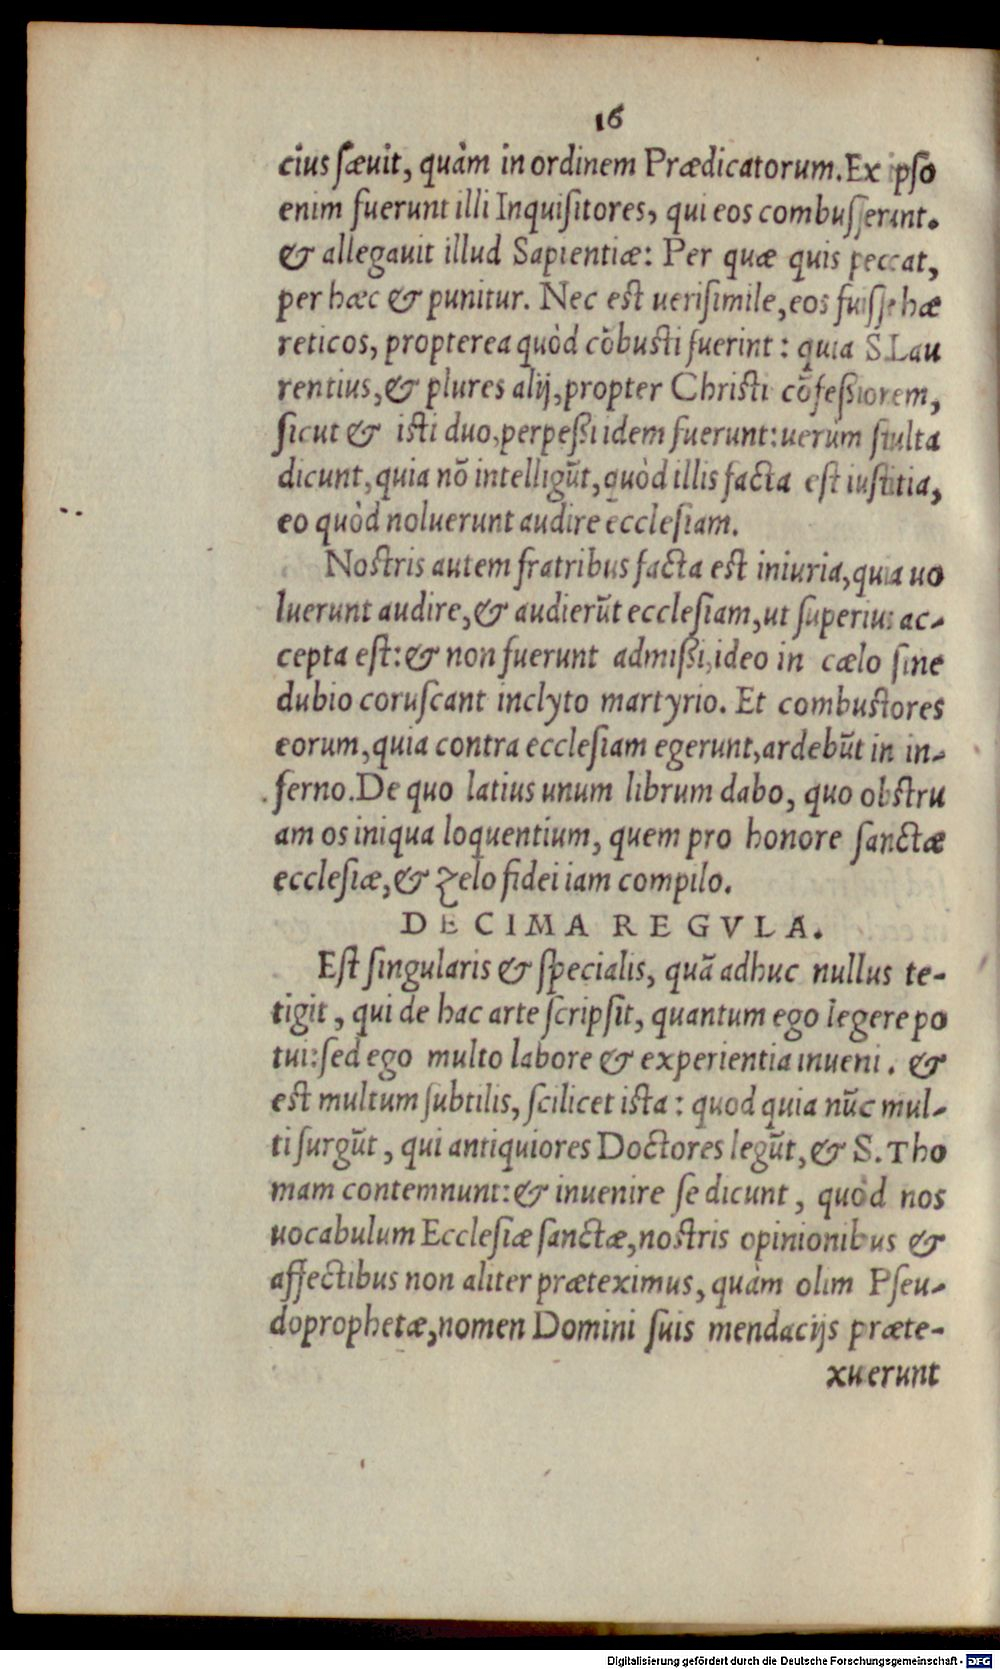 16
cius sæuit, quàm in ordinem Prædicatorum. Ex ipso
enim fuerunt illi Inquisitores, qui eos combusserunt.
& allegauit illud Sapientiæ: Per quæ quis peccat,
per hæc & punitur. Nec est uerisimile, eos fuisse hæ
reticos, propterea quòd cōbusti fuerint: quia S. Lau
rentius, & plures alij, propter Christi cōfeßionem,
sicut & isti duo, perpeßi idem fuerunt: uerùm stulta
dicunt, quia nō intelligūt, quòd illis facta est iustitia,
eo quòd noluerunt audire ecclesiam.
Nostris autem fratribus facta est iniuria, quia uo
luerunt audire, & audierūt ecclesiam, ut superius ac-
cepta est: & non fuerunt admißi, ideo in cælo sine
dubio coruscant inclyto martyrio. Et combustores
eorum, quia contra ecclesiam egerunt, ardebūt in in-
ferno. De quo latius unum librum dabo, quo obstru
am os iniqua loquentium, quem pro honore sanctæ
ecclesiæ, & zelo fidei iam compilo.
DECIMA REGVLA.
Est singularis & specialis, quā adhuc nullus te-
tigit, qui de hac arte scripsit, quantum ego legere po
tui: sed ego multo labore & experientia inueni. &
est multum subtilis, scilicet ista: quod quia nūc mul-
ti surgūt, qui antiquiores Doctores legūt, & S. Tho
mam contemnunt: & inuenire se dicunt, quòd nos
uocabulum Ecclesiæ sanctæ, nostris opinionibus &
affectibus non aliter præteximus, quàm olim Pseu-
doprophetæ, nomen Domini suis mendacijs præte-
xuerunt
Digitalisierung gefördert durch die Deutsche Forschungsgemeinschaft - DFG